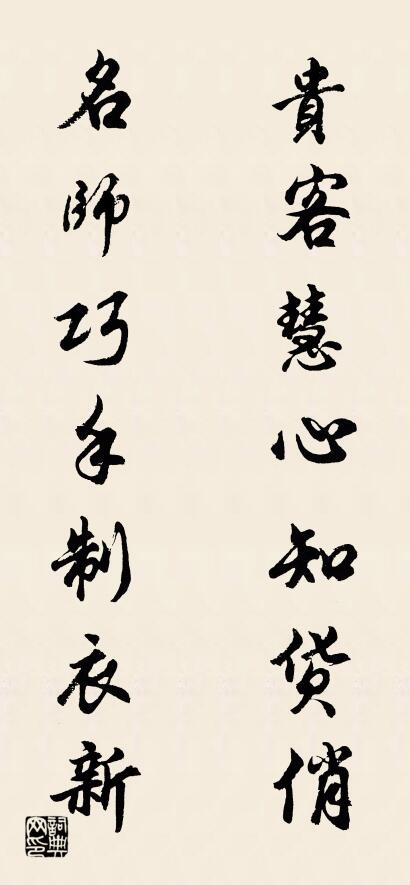 貴客慧心知货俏
名師巧手制衣新
詞典網印